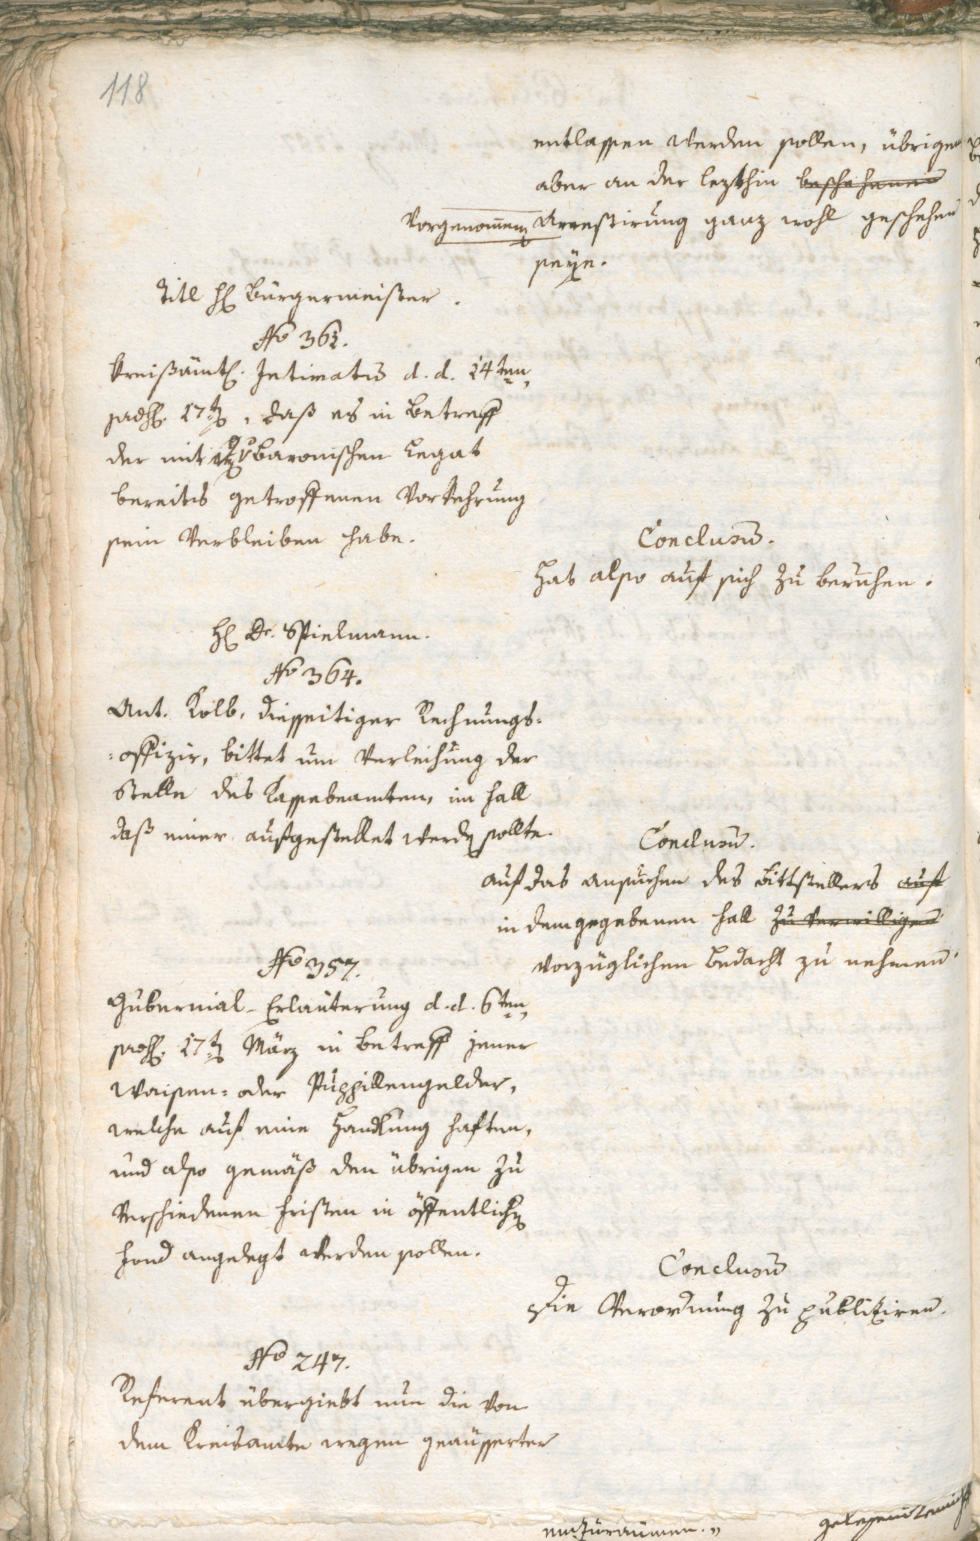 118
entlassen werden sollen, übrigens
aber an der lezthin beschehenen
vorgenommenen Arrestirung ganz wohl geschehen
seÿe.
Titl H Bürgermeister.
No 361.
Kreißämtl. Intimatum d. d. 14ten
praes. 17t, daß es in Betreff
der mit Baronischen Legat
bereits getroffenen Vorkehrung
sein Verbleiben habe.
Conclusum.
Hat also auf sich zu beruhen.
H Dr. Spielmann.
No 364.
Ant. Kolb, diesseitiger Rechnungs=
=offizir, bittet um Verleihung der
Stelle des Kassebeamten, im Fall
daß einer aufgestellet werden sollte.
Conclusum.
auf das Ansuchen des Bittstellers auf
in dem gegebenen Fall zu verwilligen
vorzüglichen Bedacht zu nehmen.
No 357.
Gubernial-Erläuterung d. d. 6ten
praes. 17t März in Betreff jener
Waisen= oder Puppillengelder,
welche auf eine Handlung haften,
und also gemäß den übrigen zu
verschiedenen Fristen in öffentlichen
Fond angelegt werden sollen.
Conclusum
Die Verordnung zu publiziren.
No 247.
Referent übergiebt nun die von
dem Kreisamte wegen geäusserter
einzuräumen.